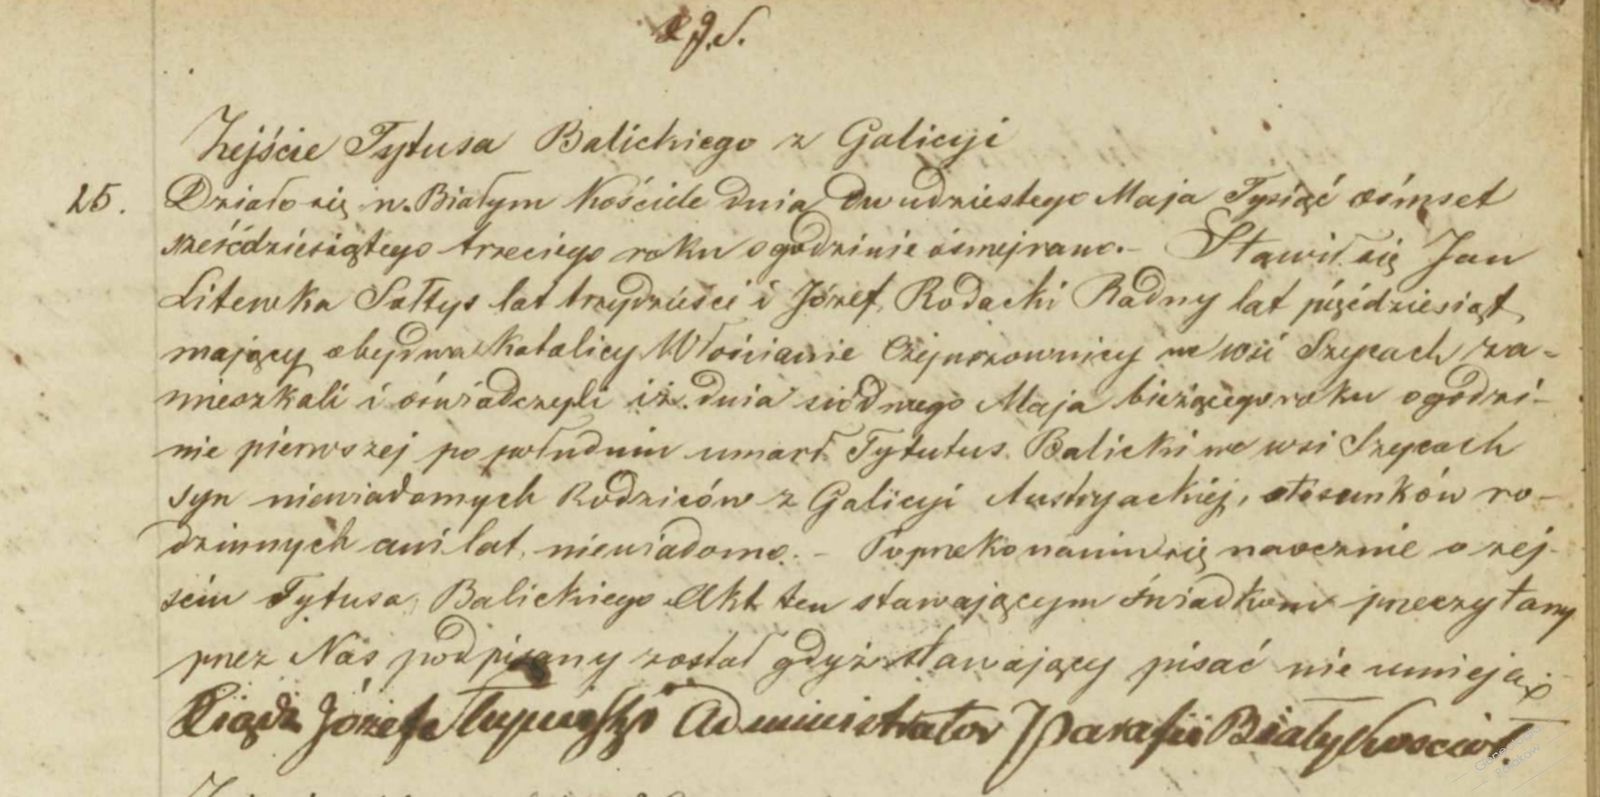 Zejście Tytusa Balickiego z Galicyi
25. Działo się w Białym Kościele dnia dwudziestego Maja Tysiąć ośmset
sześćdziesiątego trzeciego roku o godzinie ósmej rano. – Stawił się Jan
Litewka Sołtys lat trzydzieści i Józef Rodacki Radny lat pięćdziesiąt
mający obydwa Katolicy Włościanie Czynszownicy we wsi Szycach za-
mieszkali i oświadczyli iż dnia siódmego Maja bieżącego roku o godzi-
nie pierwszej po południu umarł Tytutus Balicki we wsi Szycach
syn niewiadomych Rodziców z Galicyi Austryackiéj, stosunków ro-
dzinnych ani lat niewiadomo. – Po przekonaniu się naocznie o zej-
ściu Tytusa Balickiego Akt ten stawającym świadkom przeczytany
przez Nas podpisany został gdyż stawający pisać nie umieją.
Ksiądz Józef Administrator Parafii Biały Kościoł.